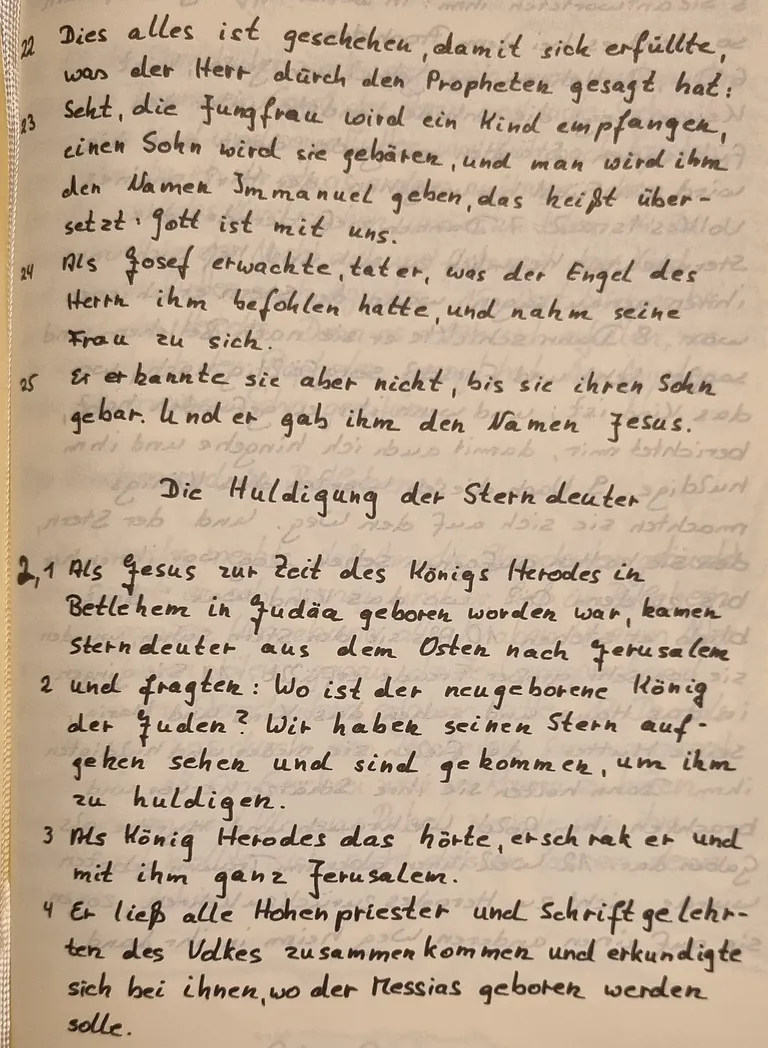 22 Dies alles ist geschehen, damit sich erfüllte,
was der Herr durch den Propheten gesagt hat:
23 Seht, die Jungfrau wird ein Kind empfangen,
einen Sohn wird sie gebären, und man wird ihm
den Namen Immanuel geben, das heißt über-
setzt: Gott ist mit uns.
24 Als Josef erwachte, tat er, was der Engel des
Herrn ihm befohlen hatte, und nahm seine
Frau zu sich.
25 Er erkannte sie aber nicht, bis sie ihren Sohn
gebar. Und er gab ihm den Namen Jesus.
Die Huldigung der Sterndeuter
2,1 Als Jesus zur Zeit des Königs Herodes in
Betlehem in Judäa geboren worden war, kamen
Sterndeuter aus dem Osten nach Jerusalem
2 und fragten: Wo ist der neugeborene König
der Juden? Wir haben seinen Stern auf-
gehen sehen und sind gekommen, um ihm
zu huldigen.
3 Als König Herodes das hörte, erschrak er und
mit ihm ganz Jerusalem.
4 Er ließ alle Hohenpriester und Schriftgelehr-
ten des Volkes zusammenkommen und erkundigte
sich bei ihnen, wo der Messias geboren werden
solle.